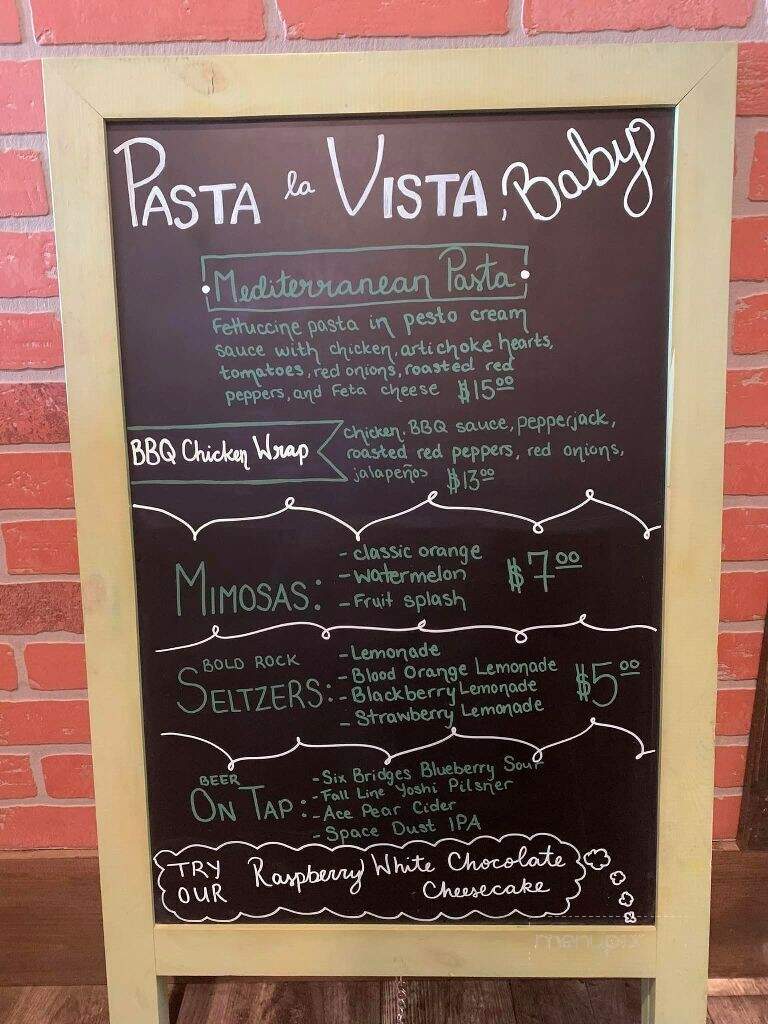 PASTA la VISTA, Baby
Mediterranean Pasta
Fettuccine pasta in pesto cream
sauce with chicken, artichoke hearts,
tomatoes, red onions, roasted red
peppers, and Feta cheese $15.00
BBQ Chicken Wrap
chicken, BBQ sauce, pepperjack,
roasted red peppers, red onions,
jalapeños $13.00
MIMOSAS:
- classic orange
- watermelon
- Fruit splash
$7.00
BOLD ROCK
SELTZERS:
- Lemonade
- Blood Orange Lemonade
- Blackberry Lemonade
- Strawberry Lemonade
$5.00
BEER
ON TAP:
- Six Bridges Blueberry Sour
- Fall Line Yoshi Pilsner
- Ace Pear Cider
- Space Dust IPA
TRY
OUR
Raspberry White Chocolate
Cheesecake
menupix